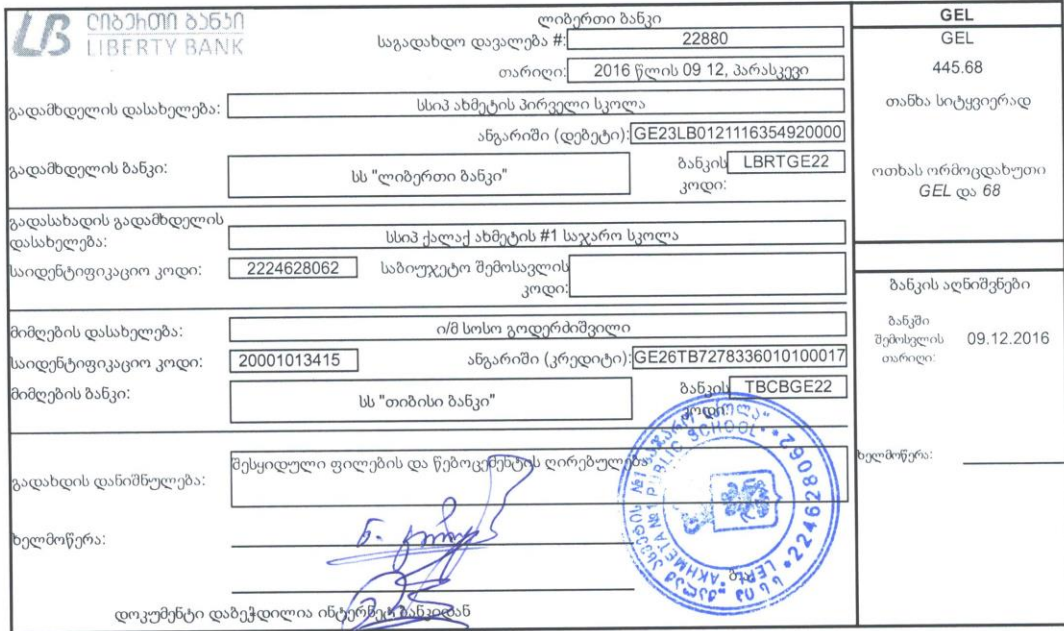 ლიბერთი ბანკი
LIBERTY BANK
ლიბერთი ბანკი
საგადახდო დავალება #: 22880
თარიღი: 2016 წლის 09 12, პარასკევი
გადამხდელის დასახელება: სსიპ ახმეტის პირველი სკოლა
ანგარიში (დებეტი): GE23LB0121116354920000
გადამხდელის ბანკი: სს "ლიბერთი ბანკი" ბანკის კოდი: LBRTGE22
გადასახადის გადამხდელის
დასახელება: სსიპ ქალაქ ახმეტის #1 საჯარო სკოლა
საიდენტიფიკაციო კოდი: 2224628062 საბიუჯეტო შემოსავლის
კოდი:
მიმღების დასახელება: ი/მ სოსო გოდერძიშვილი
საიდენტიფიკაციო კოდი: 20001013415 ანგარიში (კრედიტი): GE26TB7278336010100017
მიმღების ბანკი: სს "თიბისი ბანკი" ბანკის კოდი: TBCBGE22
გადახდის დანიშნულება: შესყიდული ფილების და წებოცემენტის ღირებულება
ხელმოწერა:
დოკუმენტი დაბეჭდილია ინტერნეტ ბანკიდან
GEL
GEL
445.68
თანხა სიტყვიერად
ოთხას ორმოცდახუთი
GEL და 68
ბანკის აღნიშვნები
ბანკში
შემოსვლის
თარიღი: 09.12.2016
ხელმოწერა:
PUBLIC SCHOOL
LEPL "AKHMETA №1
224628062